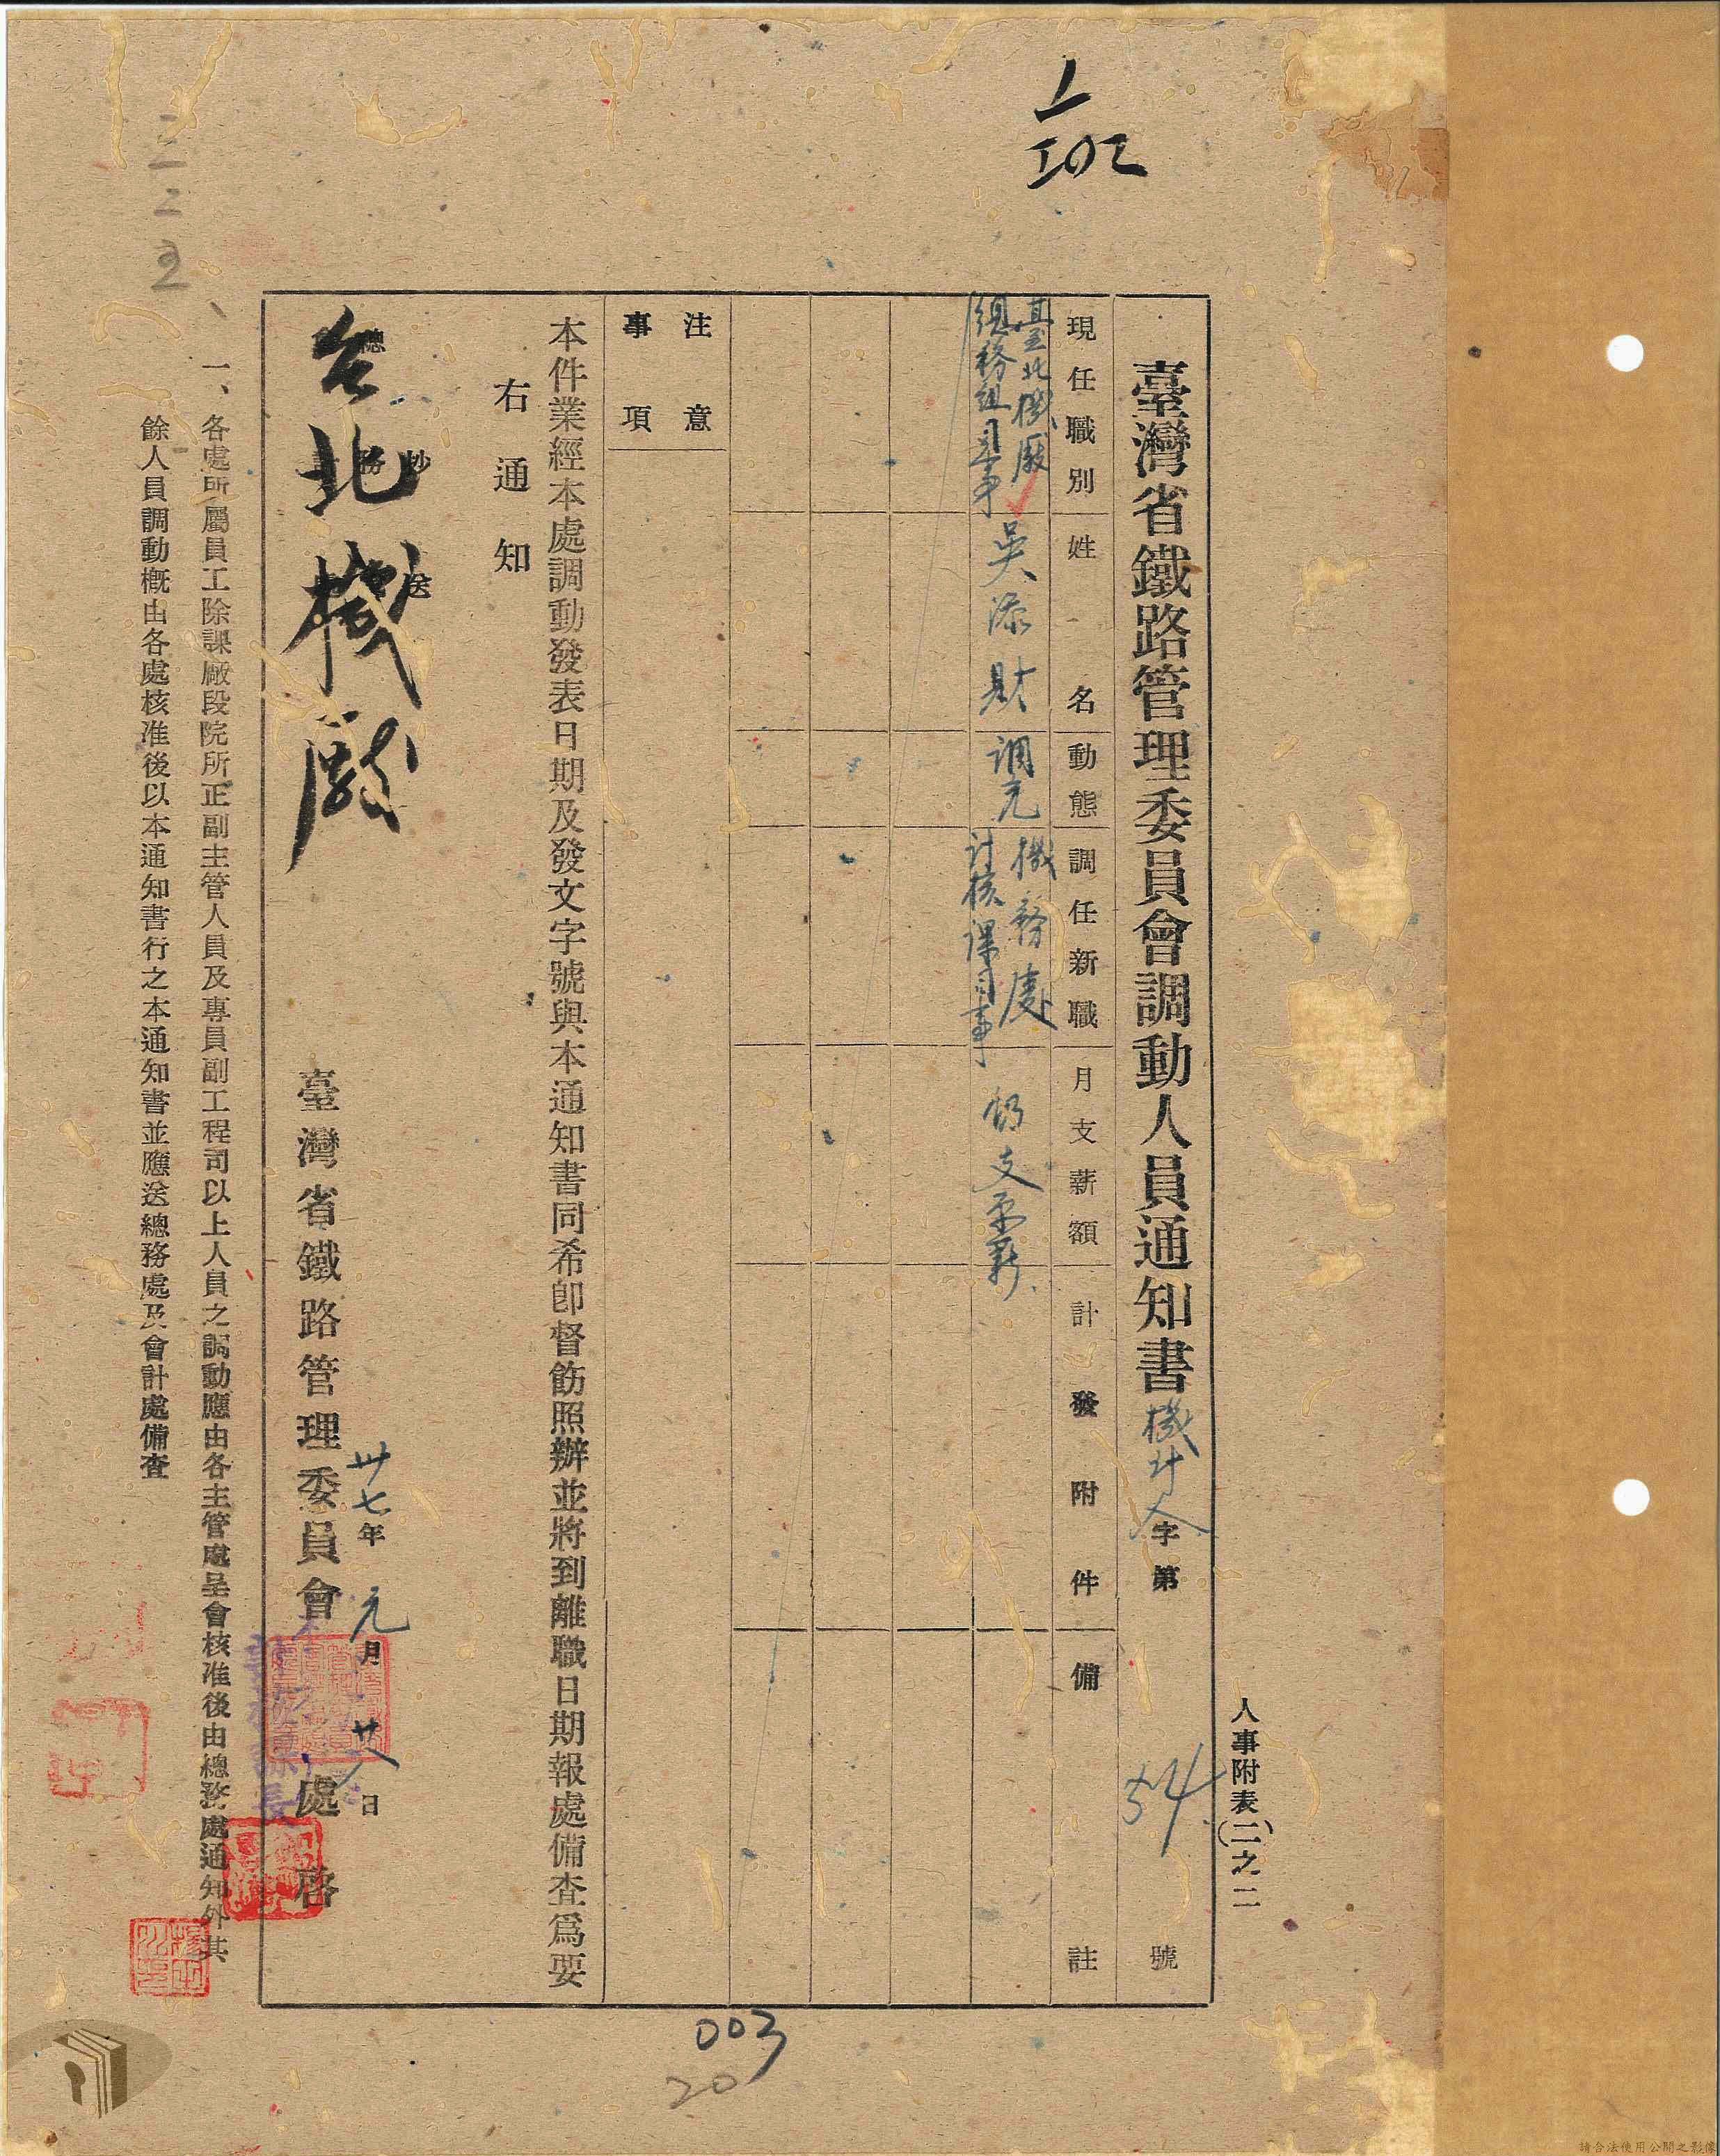 人事附表(二)之二
臺灣省鐵路管理委員會調動人員通知書 機計人字第 54 號
現任職別
姓名
動態
調任新職
月支薪額
計發附件
備註
臺北機廠
總務組司事
吳添財
調充
機務處
計核課司事
仍支原薪
注意
事項
本件業經本處調動發表日期及發文字號與本通知書同希卽督飭照辦並將到離職日期報處備查爲要
右通知
抄送
總務
台北機廠
卅七年元月廿八日
臺灣省鐵路管理委員會處啓
一、各處所屬員工除課廠段院所正副主管人員及專員副工程司以上人員之調動應由各主管處呈會核准後由總務處通知外其
餘人員調動槪由各處核准後以本通知書行之本通知書並應送總務處及會計處備查
003
20
請合法使用公開之影像